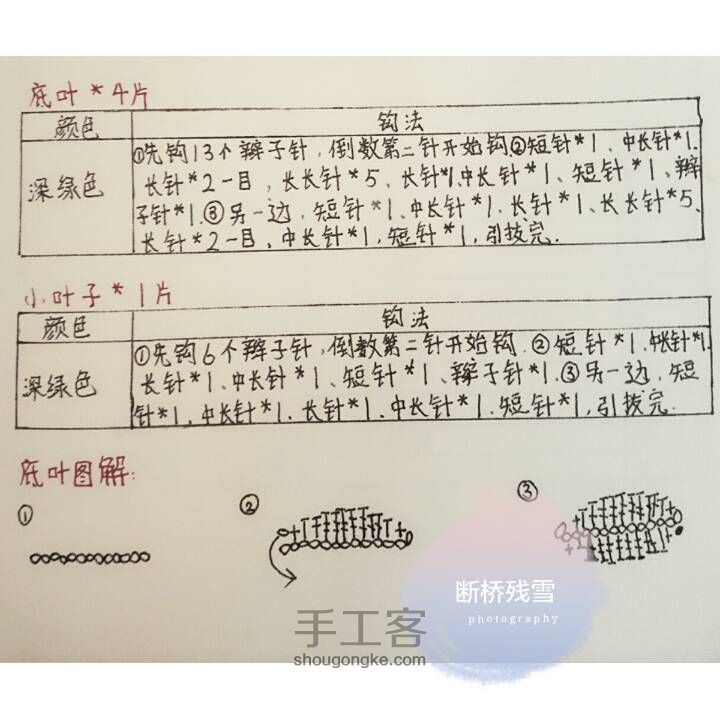 底叶*4片
颜色 钩法
深绿色
①先钩13个辫子针,倒数第二针开始钩.②短针*1、中长针*1.
长针*2一目,长长针*5、长针*1.中长针*1、短针*1、辫
子针*1.③另一边,短针*1、中长针*1.长针*1、长长针*5、
长针*2一目,中长针*1,短针*1,引拔完.
小叶子*1片
颜色 钩法
深绿色
①先钩6个辫子针,倒数第二针开始钩.②短针*1、中长针*1.
长针*1、中长针*1、短针*1、辫子针*1.③另一边,短
针*1,中长针*1.长针*1、中长针*1.短针*1,引拔完.
底叶图解:
① ② ③
断桥残雪
photography
手工客
shougongke.com